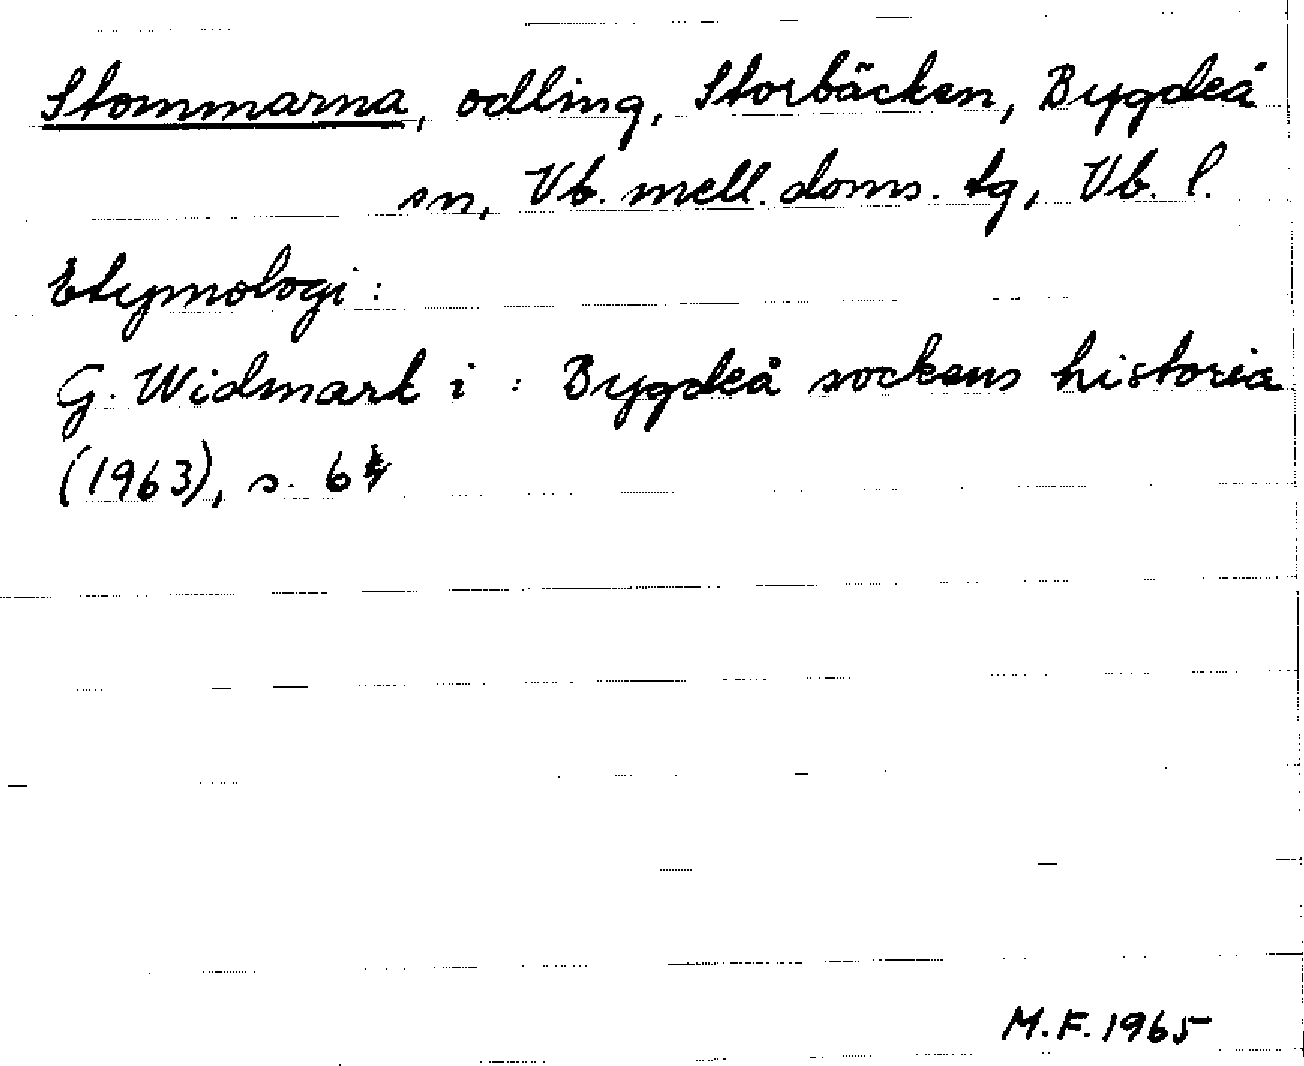 Stommarna, odling, Storbäcken, Bygdeå
sn, Vb. mell. doms. tg, Vb. l.
Etymologi:
G. Widmark i: Bygdeå sockens historia
(1963), s.
M.F. 1965